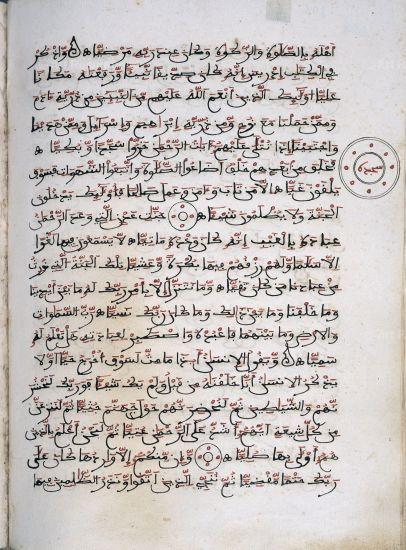 أهله بالصلوة والزكوة وكان عند ربه مرضيا واذكر
في الكتب إدريس إنه كان صديقا نبيئا ورفعنه مكانا
عليا أولئك الذين أنعم الله عليهم من النبيئين من ذرية ءادم
وممن حملنا مع نوح ومن ذرية إبرهيم وإسراءيل وممن هدينا
واجتبينا إذا تتلى عليهم ءايت الرحمن خروا سجدا وبكيا
سجدة
فخلف من بعدهم خلف أضاعوا الصلوة واتبعوا الشهوات فسوف
يلقون غيا إلا من تاب وءامن وعمل صالحا فأولئك يدخلون
الجنة ولا يظلمون شيئا جنت عدن التي وعد الرحمن
عباده بالغيب إنه كان وعده ماتيا لا يسمعون فيها لغوا
إلا سلما ولهم رزقهم فيها بكرة وعشيا تلك الجنة التي نورث
من عبادنا من كان تقيا وما نتنزل إلا بامر ربك له ما بين أيدينا
وما خلفنا وما بين ذلك وما كان ربك نسيا رب السموات
والارض وما بينهما فاعبده واصطبر لعبادته هل تعلم له
سميا ويقول الانسن أءذا ما مت لسوف أخرج حيا أولا
يذكر الانسن أنا خلقنه من قبل ولم يك شيئا فوربك لنحشر
نهم والشيطين ثم لنحضرنهم حول جهنم جثيا ثم لننزعن
من كل شيعة أيهم أشد على الرحمن عتيا ثم لنحن أعلم بالذين
هم أولى بها صليا وإن منكم إلا واردها كان على
ربك حتما مقضيا ثم ننجي الذين اتقوا ونذر الظلمين فيها